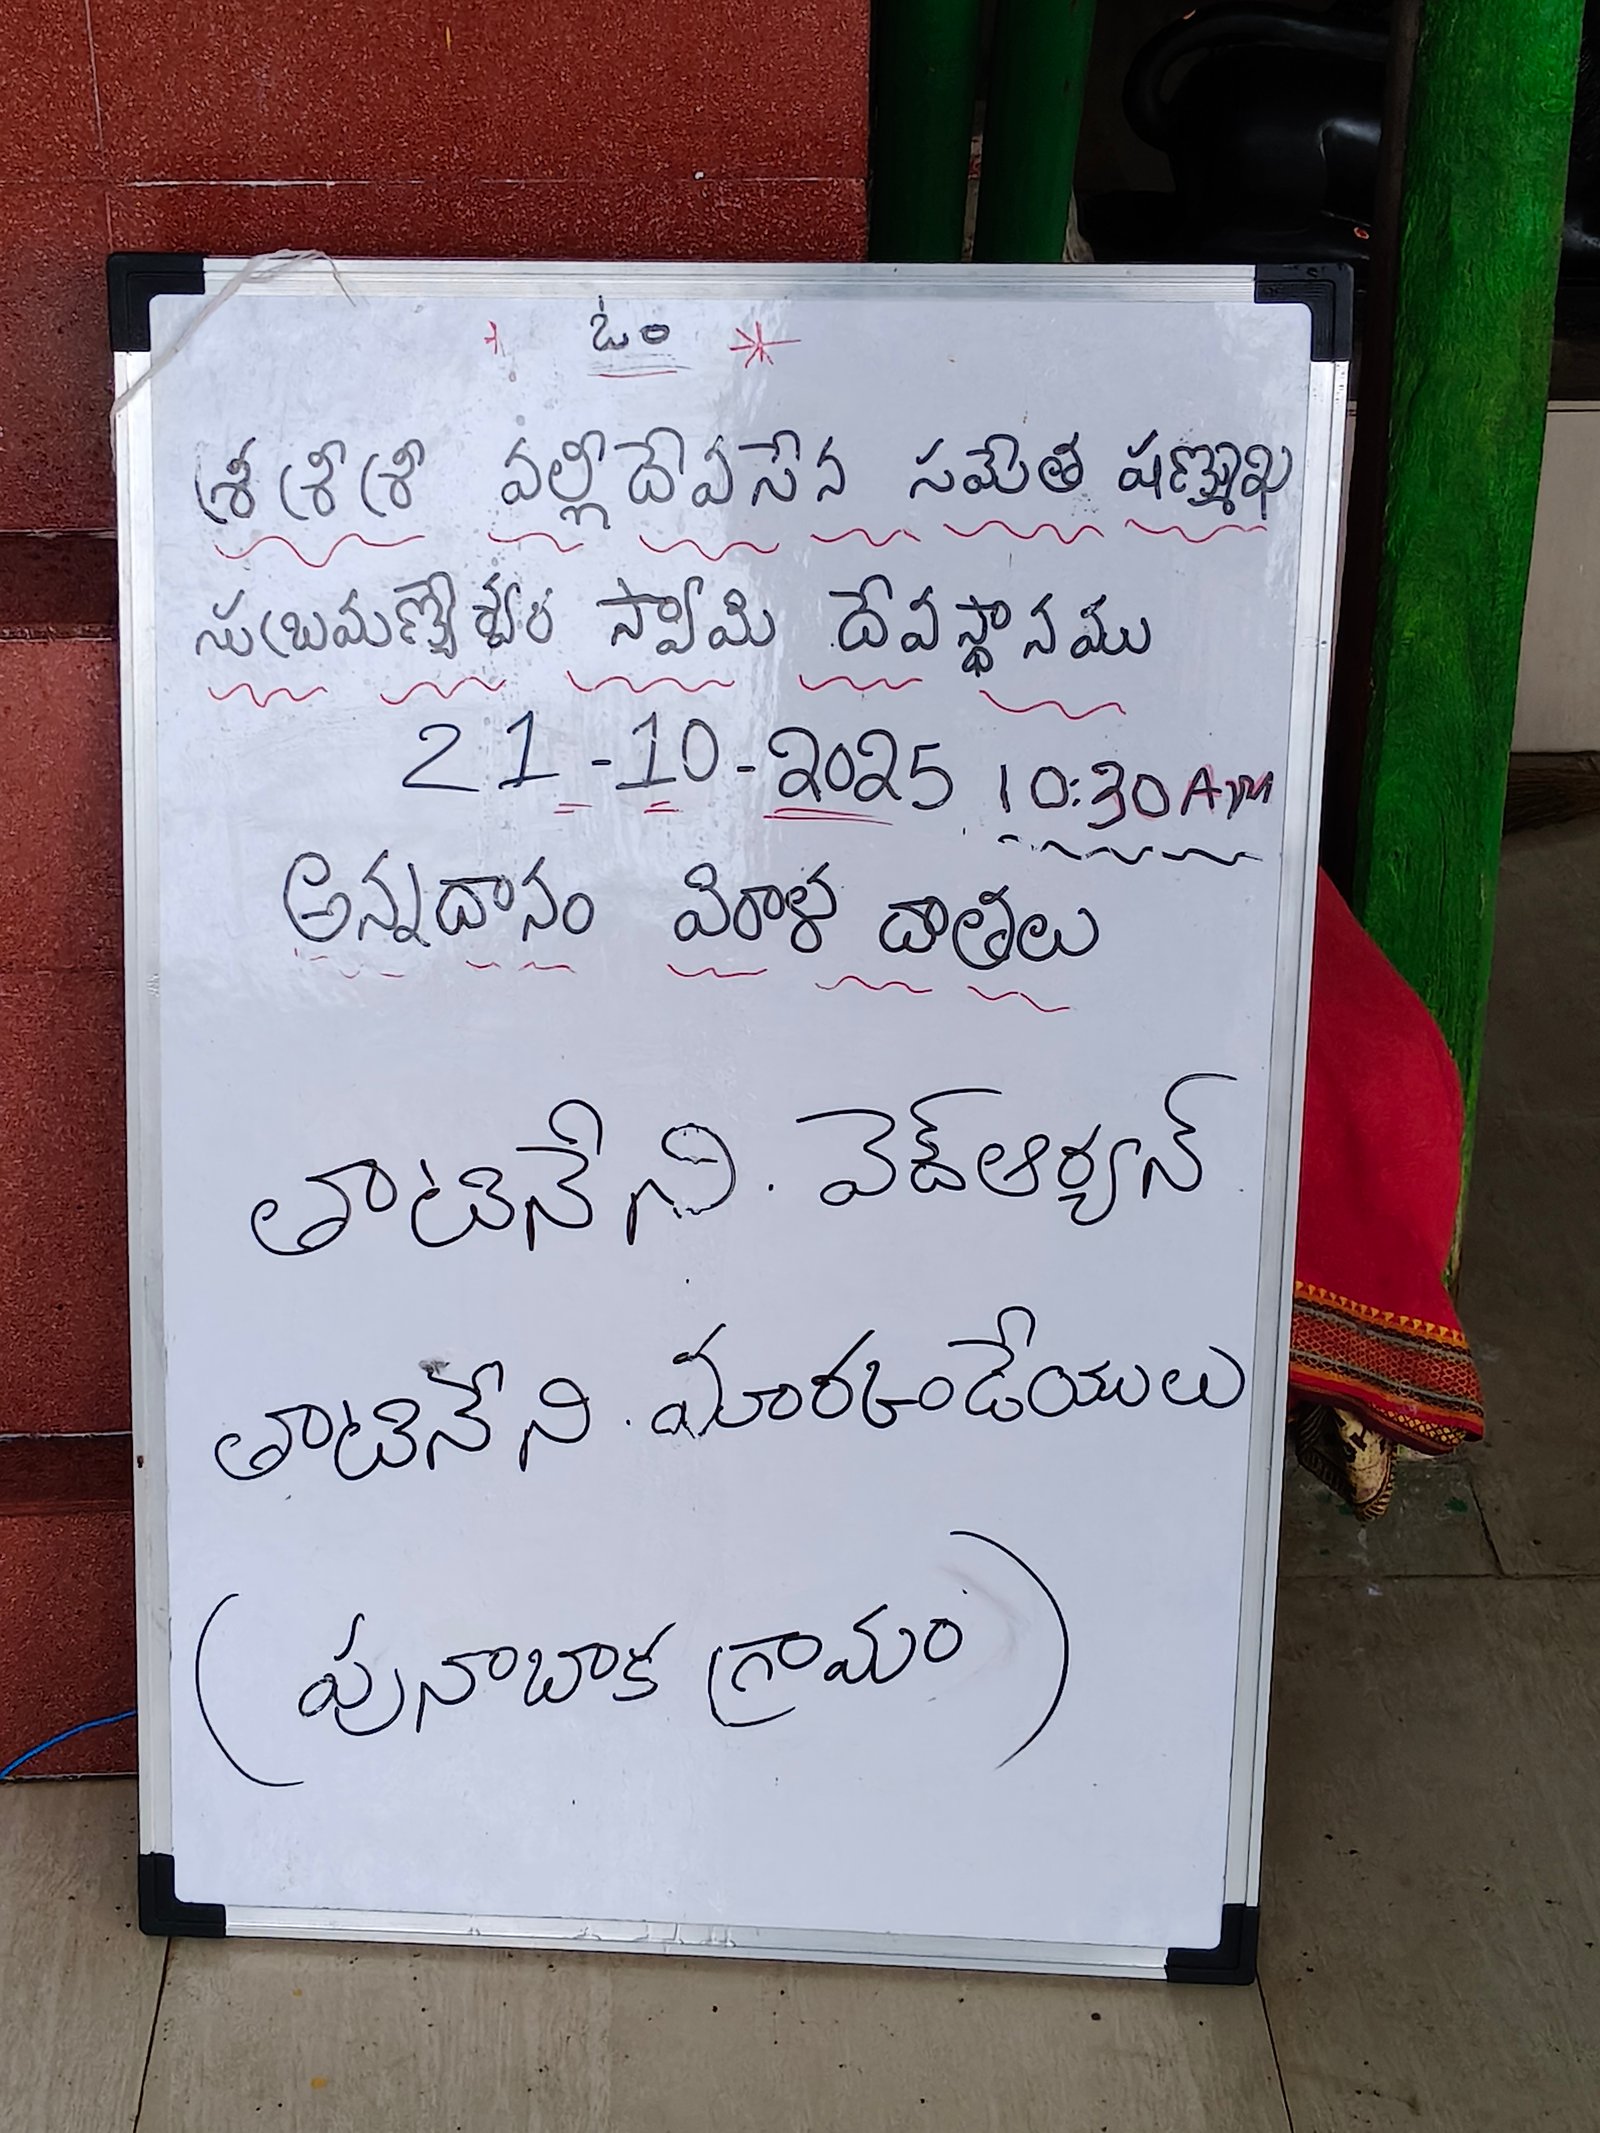 * ఓం *
శ్రీ శ్రీ శ్రీ వల్లీదేవసేన సమేత షణ్ముఖ
సుబ్రమణ్యేశ్వర స్వామి దేవస్థానము
21-10-2025 10:30AM
అన్నదానం విరాళ దాతలు
తాటినేని. వెద్ఆర్యన్.
తాటినేని. మారకండేయులు
(పునాబాక గ్రామం)